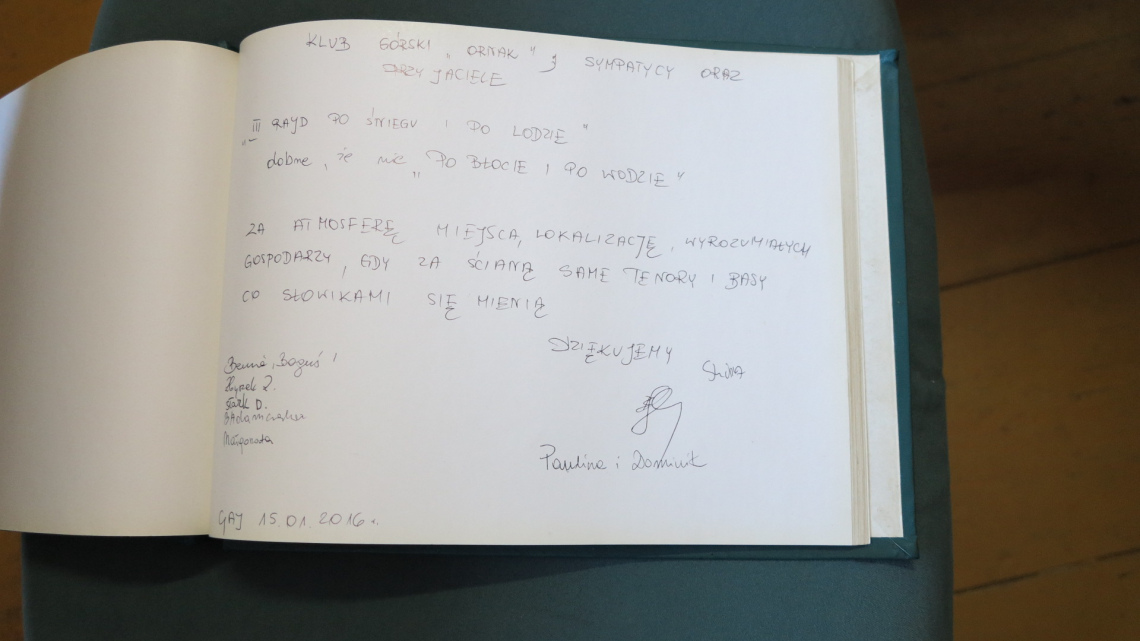 KLUB GÓRSKI „ORNAK" SYMPATYCY ORAZ
PRZYJACIELE
„III RAJD PO ŚNIEGU I PO LODZIE"
dobrze, że nie „PO BŁOCIE I PO WODZIE"
ZA ATMOSFERĘ MIEJSCA, LOKALIZACJĘ, WYROZUMIAŁYCH
GOSPODARZY, GDY ZA ŚCIANĄ SAME TENORY I BASY
CO SŁOWIKAMI SIĘ MIENIĄ
DZIĘKUJEMY
Boguś
Z.
D.
Małgorzata
Paulina i Dominik
GAJ 15.01.2016 r.